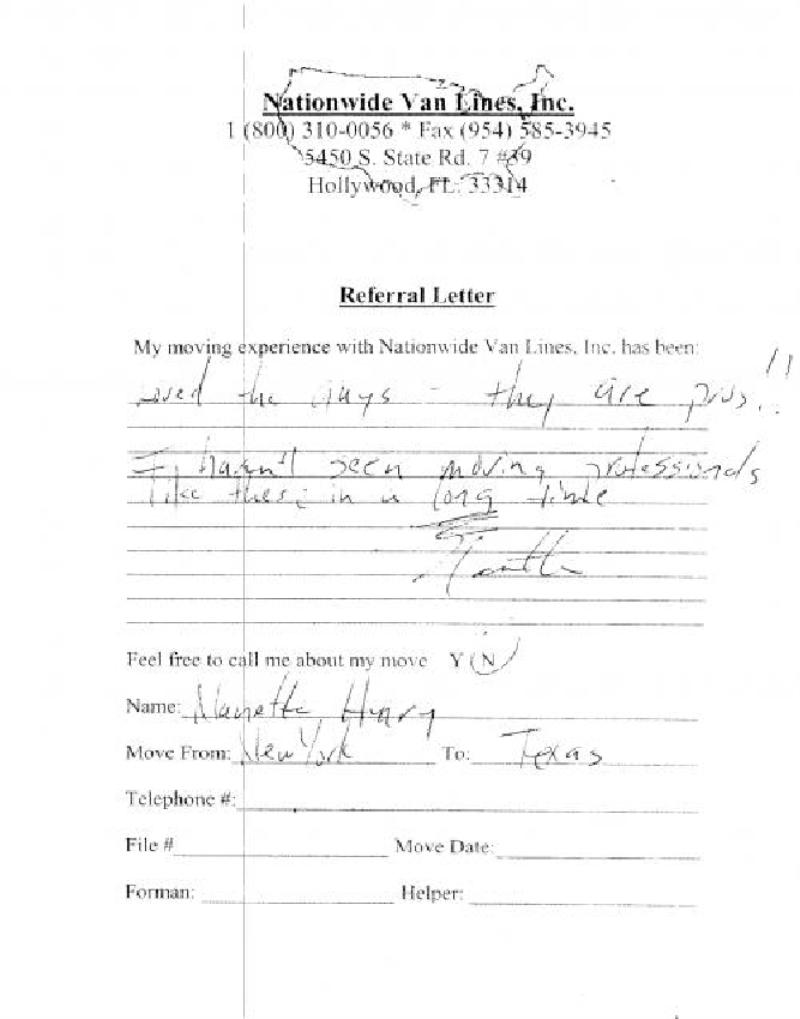 Nationwide Van Lines, Inc.
1 (800) 310-0056 * Fax (954) 585-3945
5450 S. State Rd. 7 #39
Hollywood, FL. 33314
Referral Letter
My moving experience with Nationwide Van Lines, Inc. has been:
Loved the guys - they are pros!!
I haven't seen moving professionals
like these in a long time
Feel free to call me about my move Y N
Name: Nanette Henry
Move From: New York To: Texas
Telephone #:
File # Move Date:
Forman: Helper: